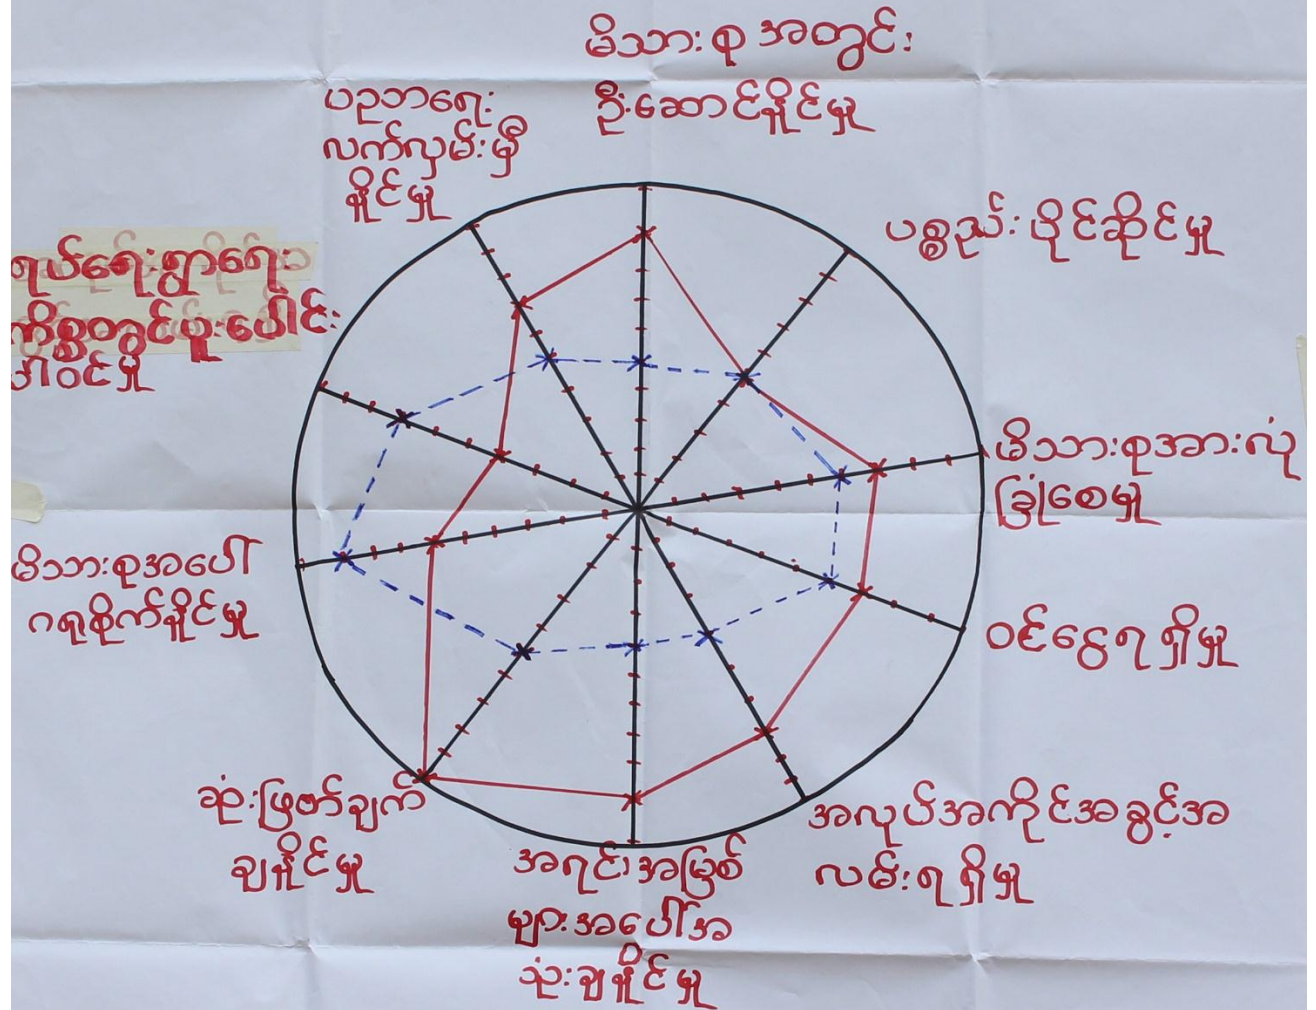 မိသားစုအတွင်း
ဦးဆောင်နိုင်မှု
ပစ္စည်းပိုင်ဆိုင်မှု
မိသားစုအားလုံ
ခြုံစေမှု
ဝင်ငွေရရှိမှု
အလုပ်အကိုင်အခွင့်အ
လမ်းရရှိမှု
အရင်းအမြစ်
များအပေါ်အ
သုံးချနိုင်မှု
ဆုံးဖြတ်ချက်
ချနိုင်မှု
မိသားစုအပေါ်
ဂရုစိုက်နိုင်မှု
ရပ်ရေးရွာရေး
ကိစ္စတွင်ပူးပေါင်း
ပါဝင်မှု
ပညာရေး
လက်လှမ်းမှီ
နိုင်မှု